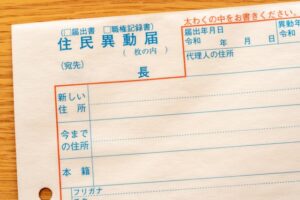 太わくの中をお書きください。
(□届出書 □職権記録書)
住民異動届
( 枚の内 )
(宛先)
長
届出年月日
令和 年 月 日
異動
令和
代理人の住所
新しい
住所
今まで
の住所
本籍
フリガナ